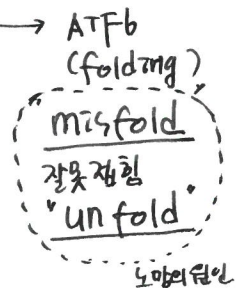 → ATF6
(folding)
misfold
잘못접힘
"unfold"
노망의 원인